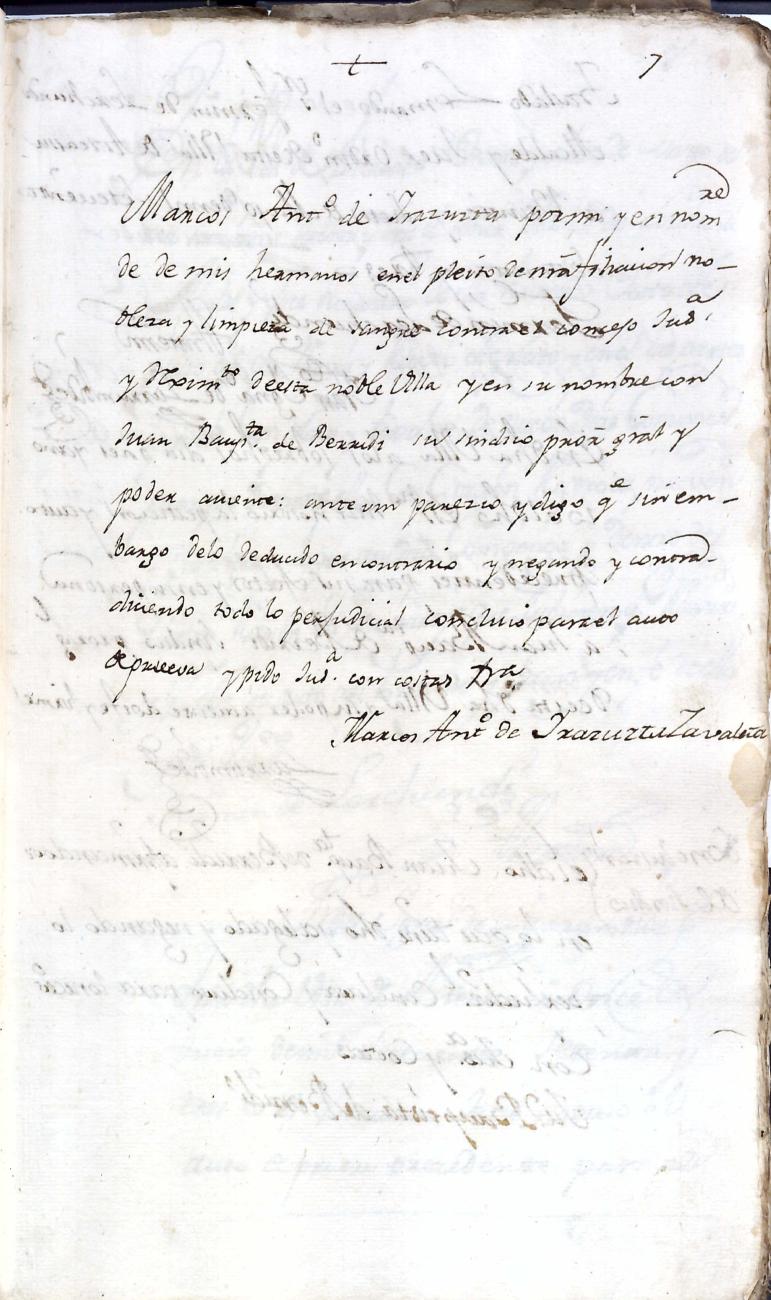 + 7
Marcos Antº de Irazusta por mi y en nomre
de de mis hermanos en el pleito de nrã filiacion no–
bleza y limpieza de sangre contra el concejo Jusª
y Rximto de esta noble Villa y en su nombre con
Juan Baupta de Berridi su sindico procr grãl y
poder aviente: ante vm parezco y digo qe sin em–
bargo delo deducido en contrario y negando y contra–
diciendo todo lo perjudicial concluio para el auto
de prueva y pido Jusª con costas Vra
Marcos Antº de Irazusta Zavaleta